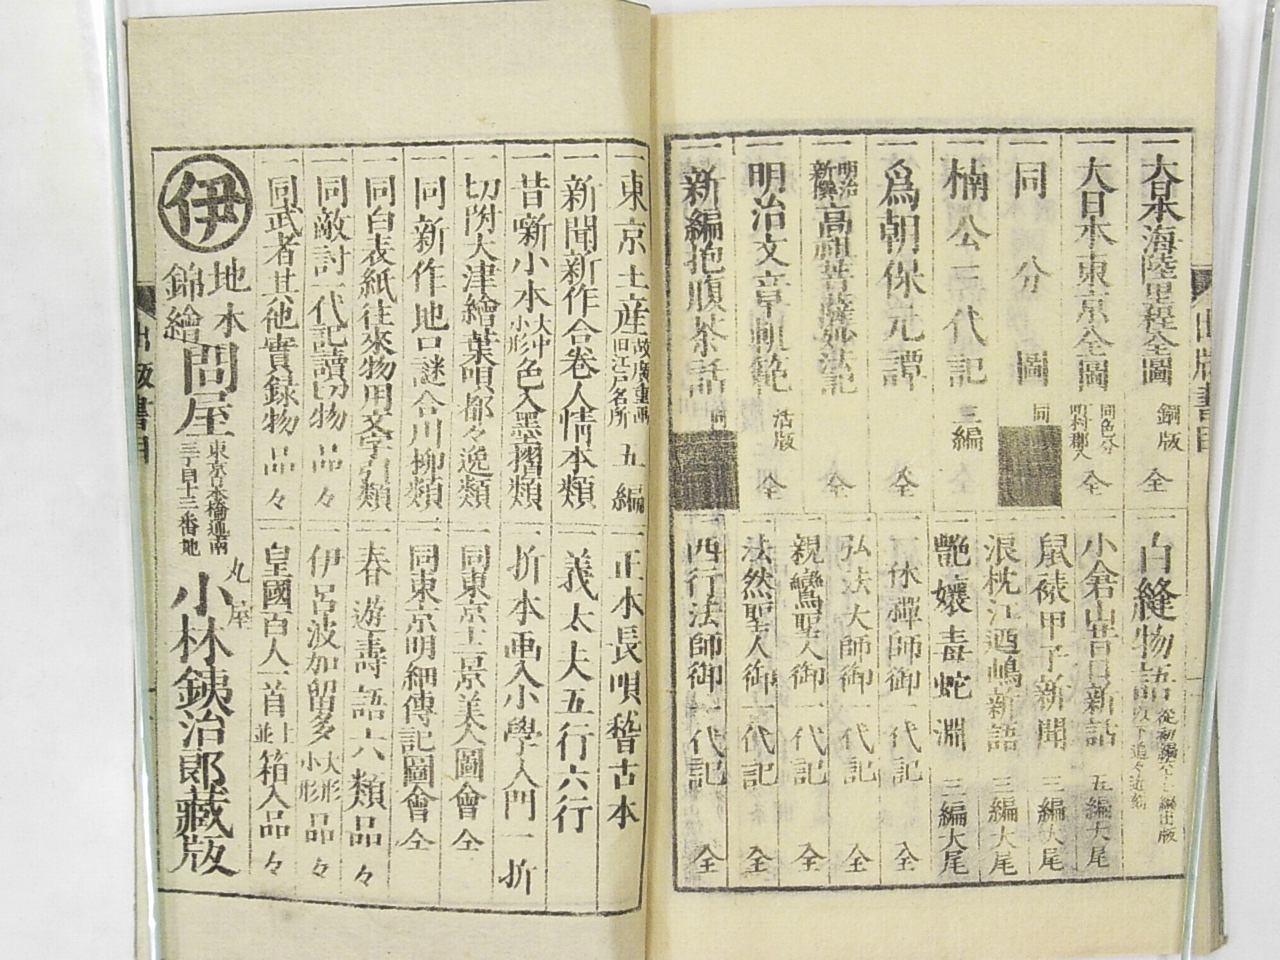 一大日本海陸里程全圖 銅版 全
一大日本東京全圖 同色分 明村郡入 全
一同分圖 同
一楠公三代記 三編 全
一爲朝保元譚 全
一明治新撰高祖菩薩妙法記 全
一明治文章軌範 活版 全
一新編抱腹茶話 同
一白縫物語
一小倉山昔日新話 五編大尾
一鼠裱甲子新聞 三編大尾
一浪枕江廼嶋新語 三編大尾
一艶孃毒蛇淵 三編大尾
一一休禪師御一代記 全
一弘法大師御一代記 全
一親鸞聖人御一代記 全
一法然聖人御一代記 全
一西行法師御一代記 全
出版書目
一東京土産 故廣重画 旧江戸名所 五編
一新聞新作合卷人情本類
一昔噺小本 大中小形 色入墨摺類
一切附大津繪葉唄都々逸類
一同新作地口謎合川柳類
一同白表紙往來物用文字引類
一同敵討一代記讀切物 品々
一同武者其他實録物 品々
一正本長唄稽古本
一義太夫五行六行
一折本画入小學入門 一折
一同東京土景美人圖會 全
一同東京明細傳記圖會 全
一春遊壽語六類品々
一伊呂波加留多 大形小形 品々
一皇國百人一首 上並 箱入品々
伊
地本
錦繪
問屋
東京日本橋通南
三丁目十三番地
丸屋
小林鉄治郎藏版
出版書目